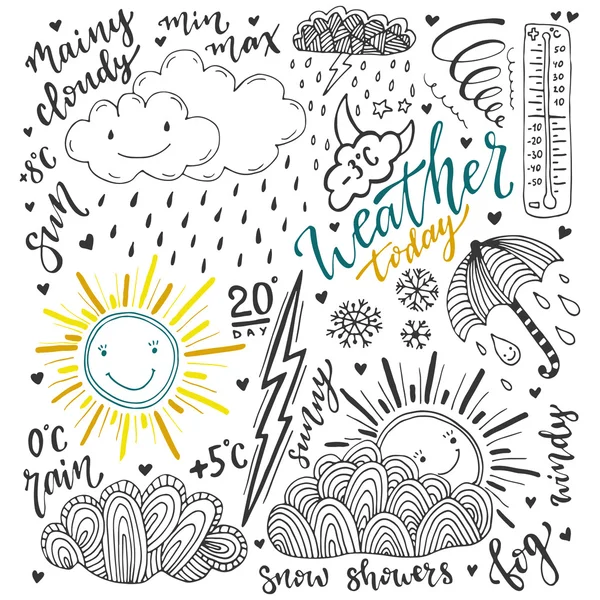 mainy
cloudy
min
max
+8°C
sun
-3°C
weather
today
+ °C
50
40
30
20
10
-10
-20
-30
-40
-50
20°
DAY
sunny
0°C
rain
+5°C
windy
fog
snow showers